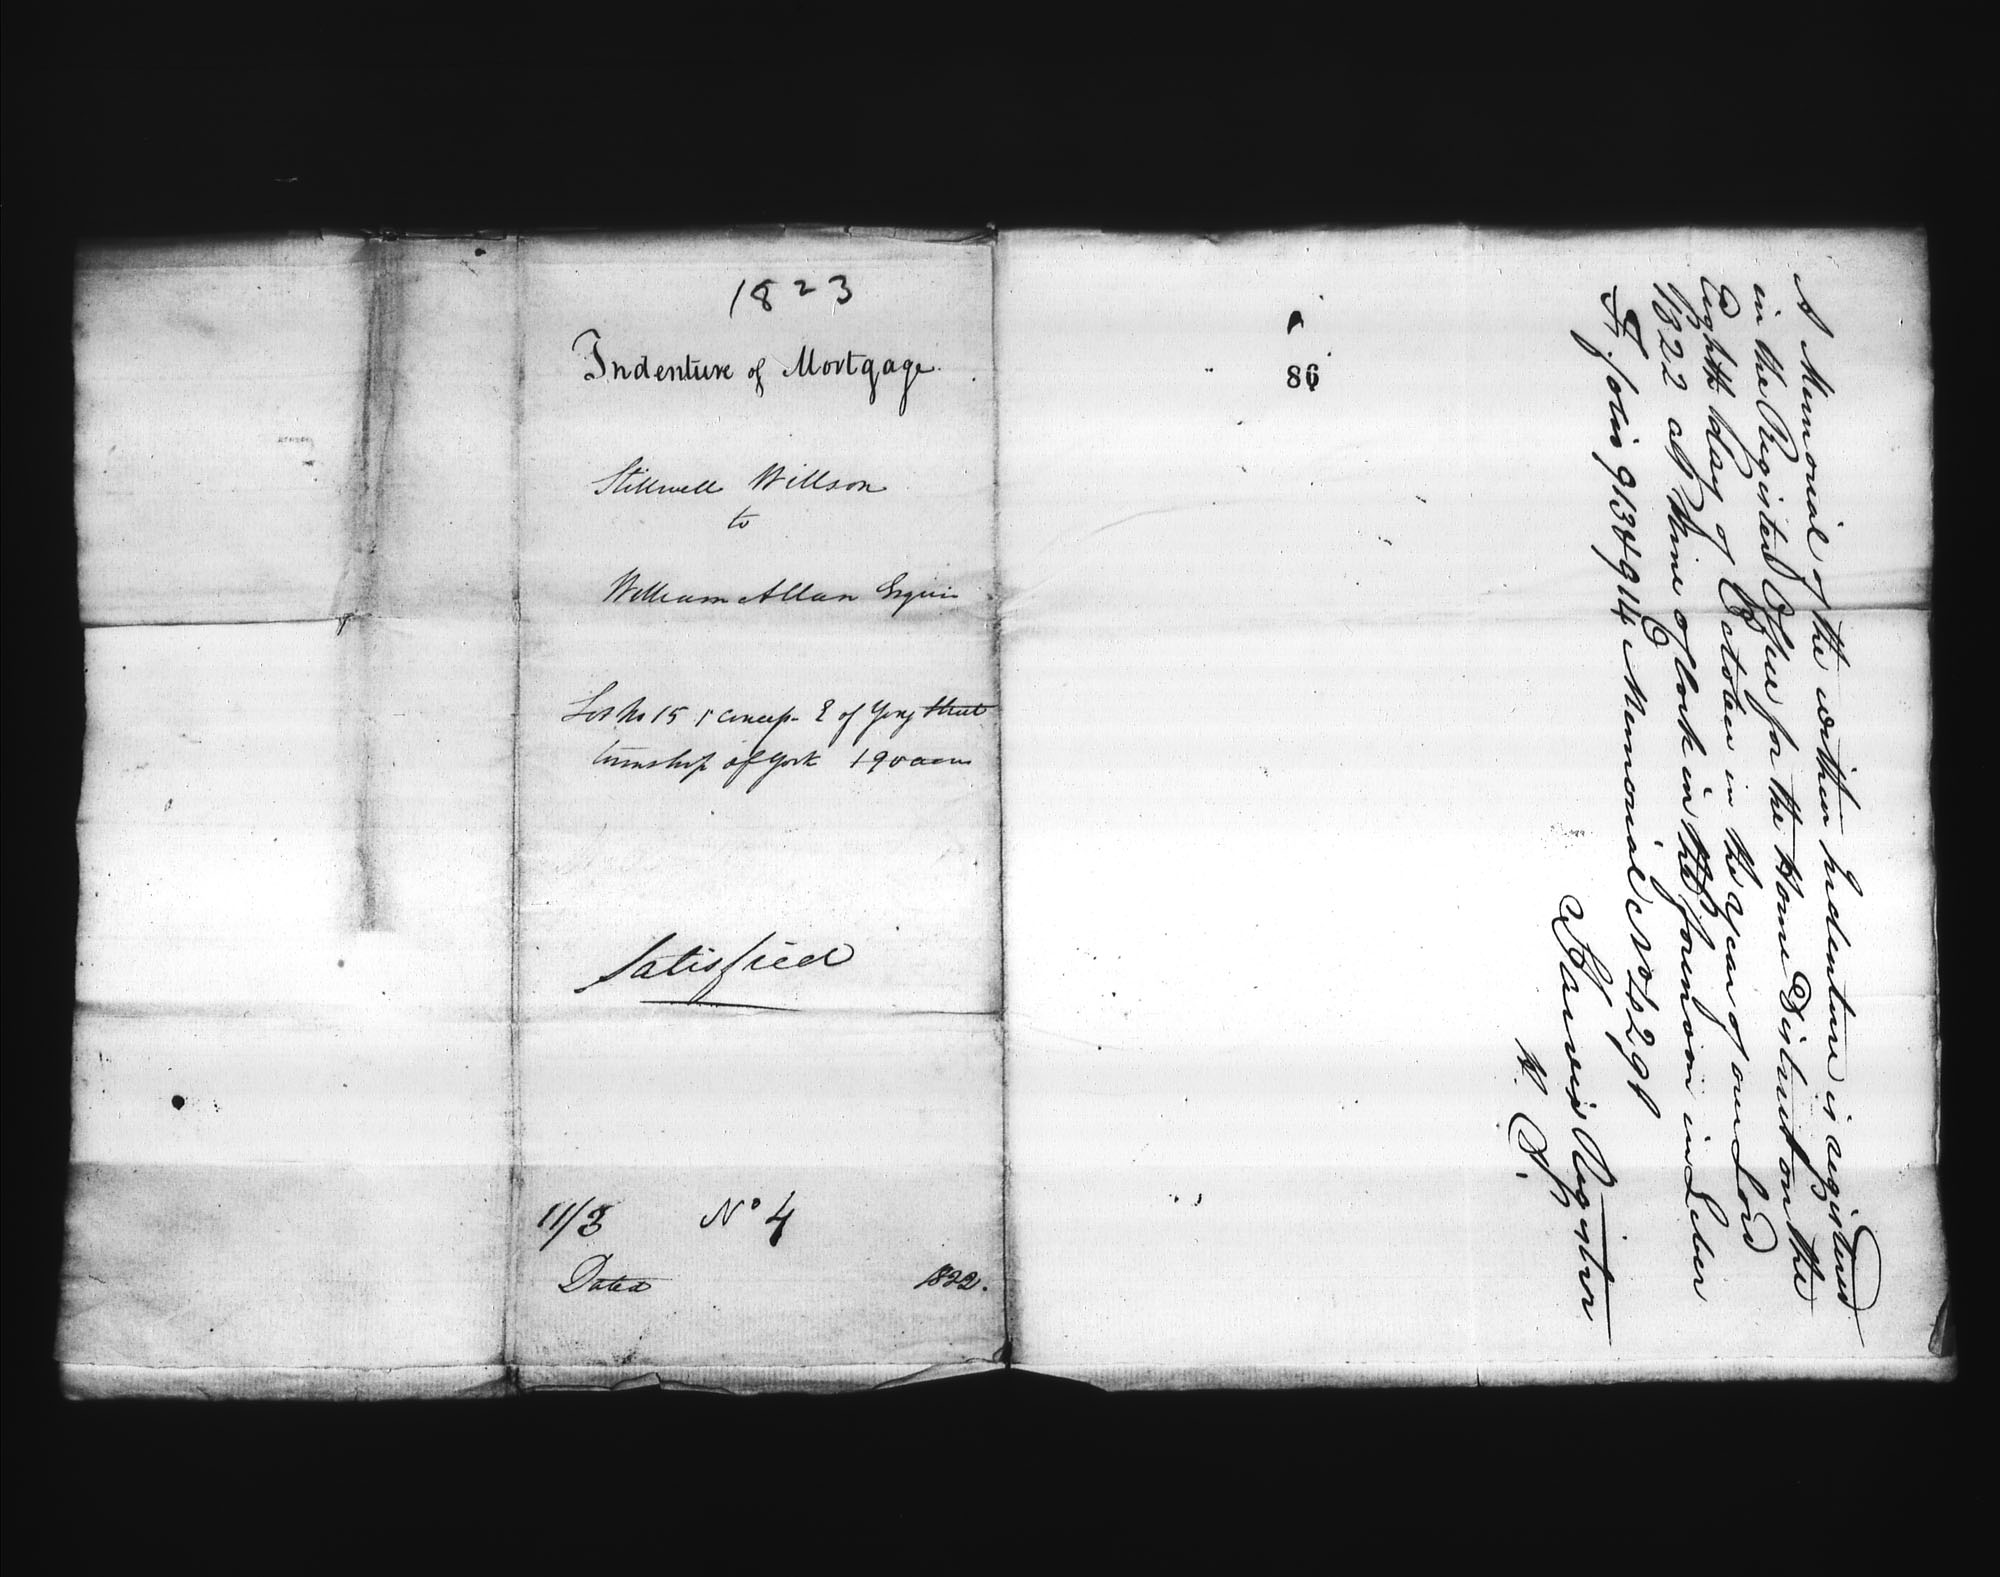 1823
Indenture of Mortgage.
Stillwell Willson
to
William Allan Esquire
Lot No 15 1 Concess- E of Yong Street
township of York 190 acres
Satisfied
11/3 No 4
Dated 1822.
86
A Memorial of the within Indenture is registered
in the Register Office for the Home District on the
Eighth day of October in the year of our Lord
1822 at Nine o'Clock in the forenoon in Liber
folio 913 & 914 Memorial No 4291
S Jarvis Registrer
H. D.